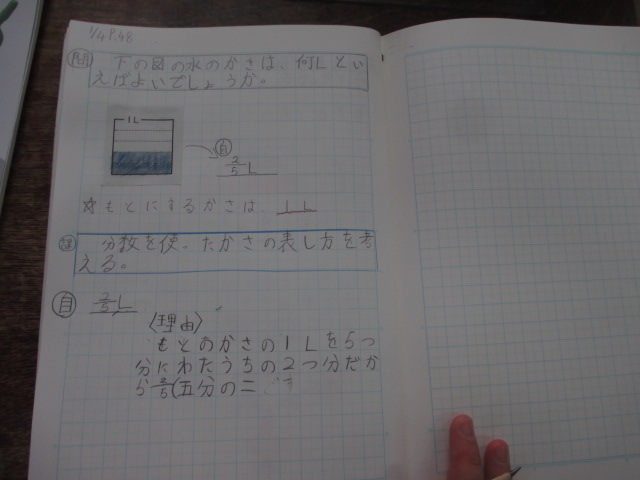 1/4 P.48
問 下の図の水のかさは、何Lとい
えばよいでしょうか。
1L
自
2/5 L
☆もとにするかさは、1L
課 分数を使ったかさの表し方を考
える。
自 2/5 L
〈理由〉
もとのかさの1Lを5つ
分にわたうちの2つ分だか
ら2/5(五分の二